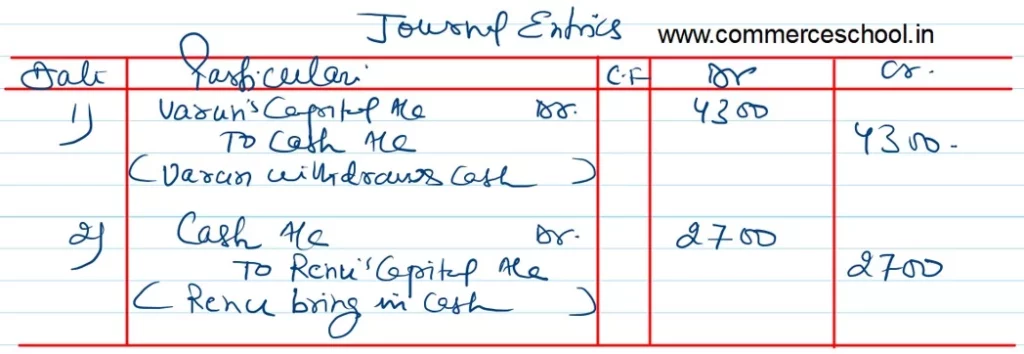 Journal Entries www.commerceschool.in
Date Particulars C.F Dr Cr.
1) Varun's Capital A/c Dr. 4300
To Cash A/c 4300-
(Varun withdraws Cash)
2) Cash A/c Dr. 2700
To Renu's Capital A/c 2700
(Renu bring in Cash)